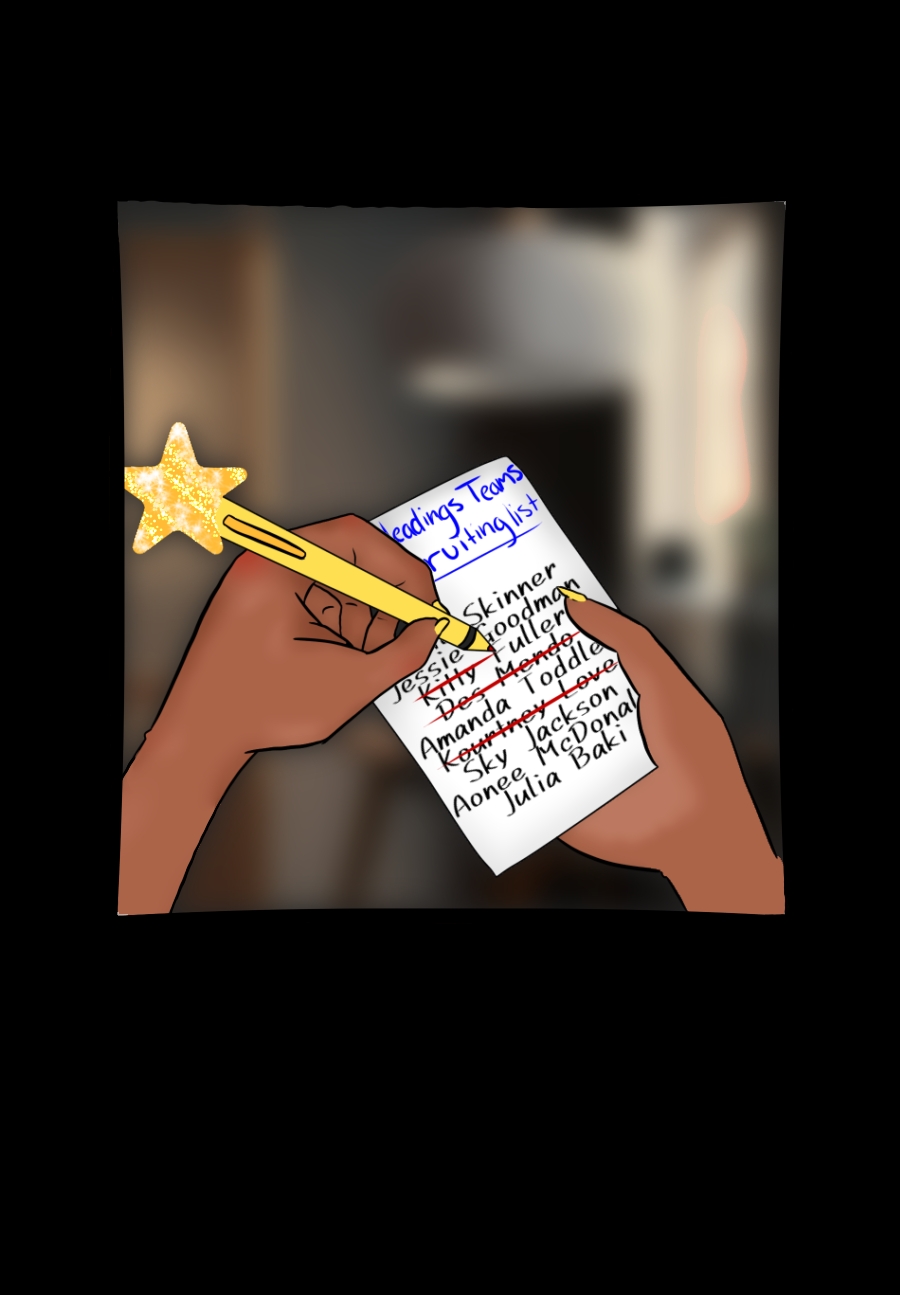 leadings Teams
ruiting list
Skinner
Jessie Goodman
Kitty Fuller
Des Mendo
Amanda Toddle
Kourtney Love
Sky Jackson
Aonee McDonal
Julia Baki